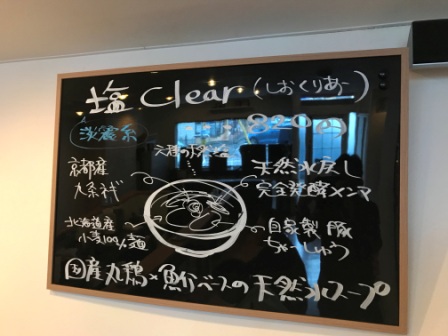 塩 Clear (しおくりあー)
淡麗系
820円
京都産
九条ネギ
天然水戻し
完全発酵メンマ
北海道産
小麦100%麺
自家製 豚
ちゃーしゅう
国産丸鶏×魚介ベースの天然水スープ